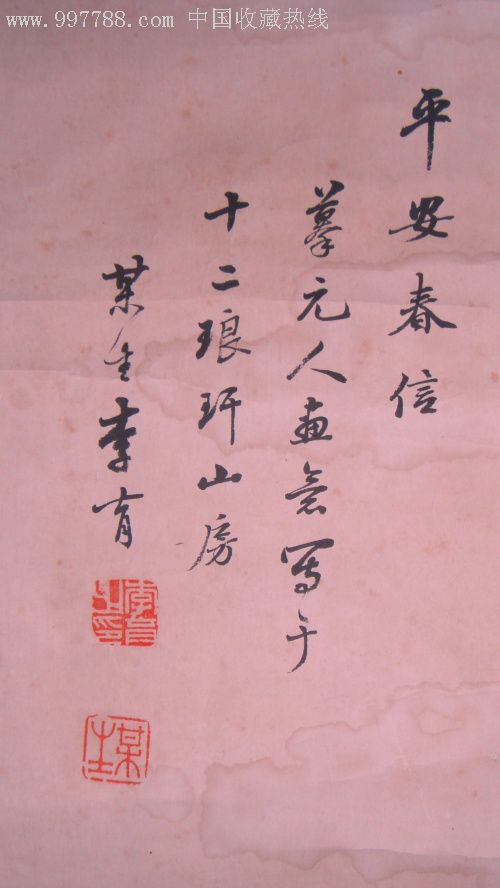 www.997788.com 中国收藏热线
平安春信
摹元人畫意寫于
十二琅玕山房
某生李育
李育之印
某生